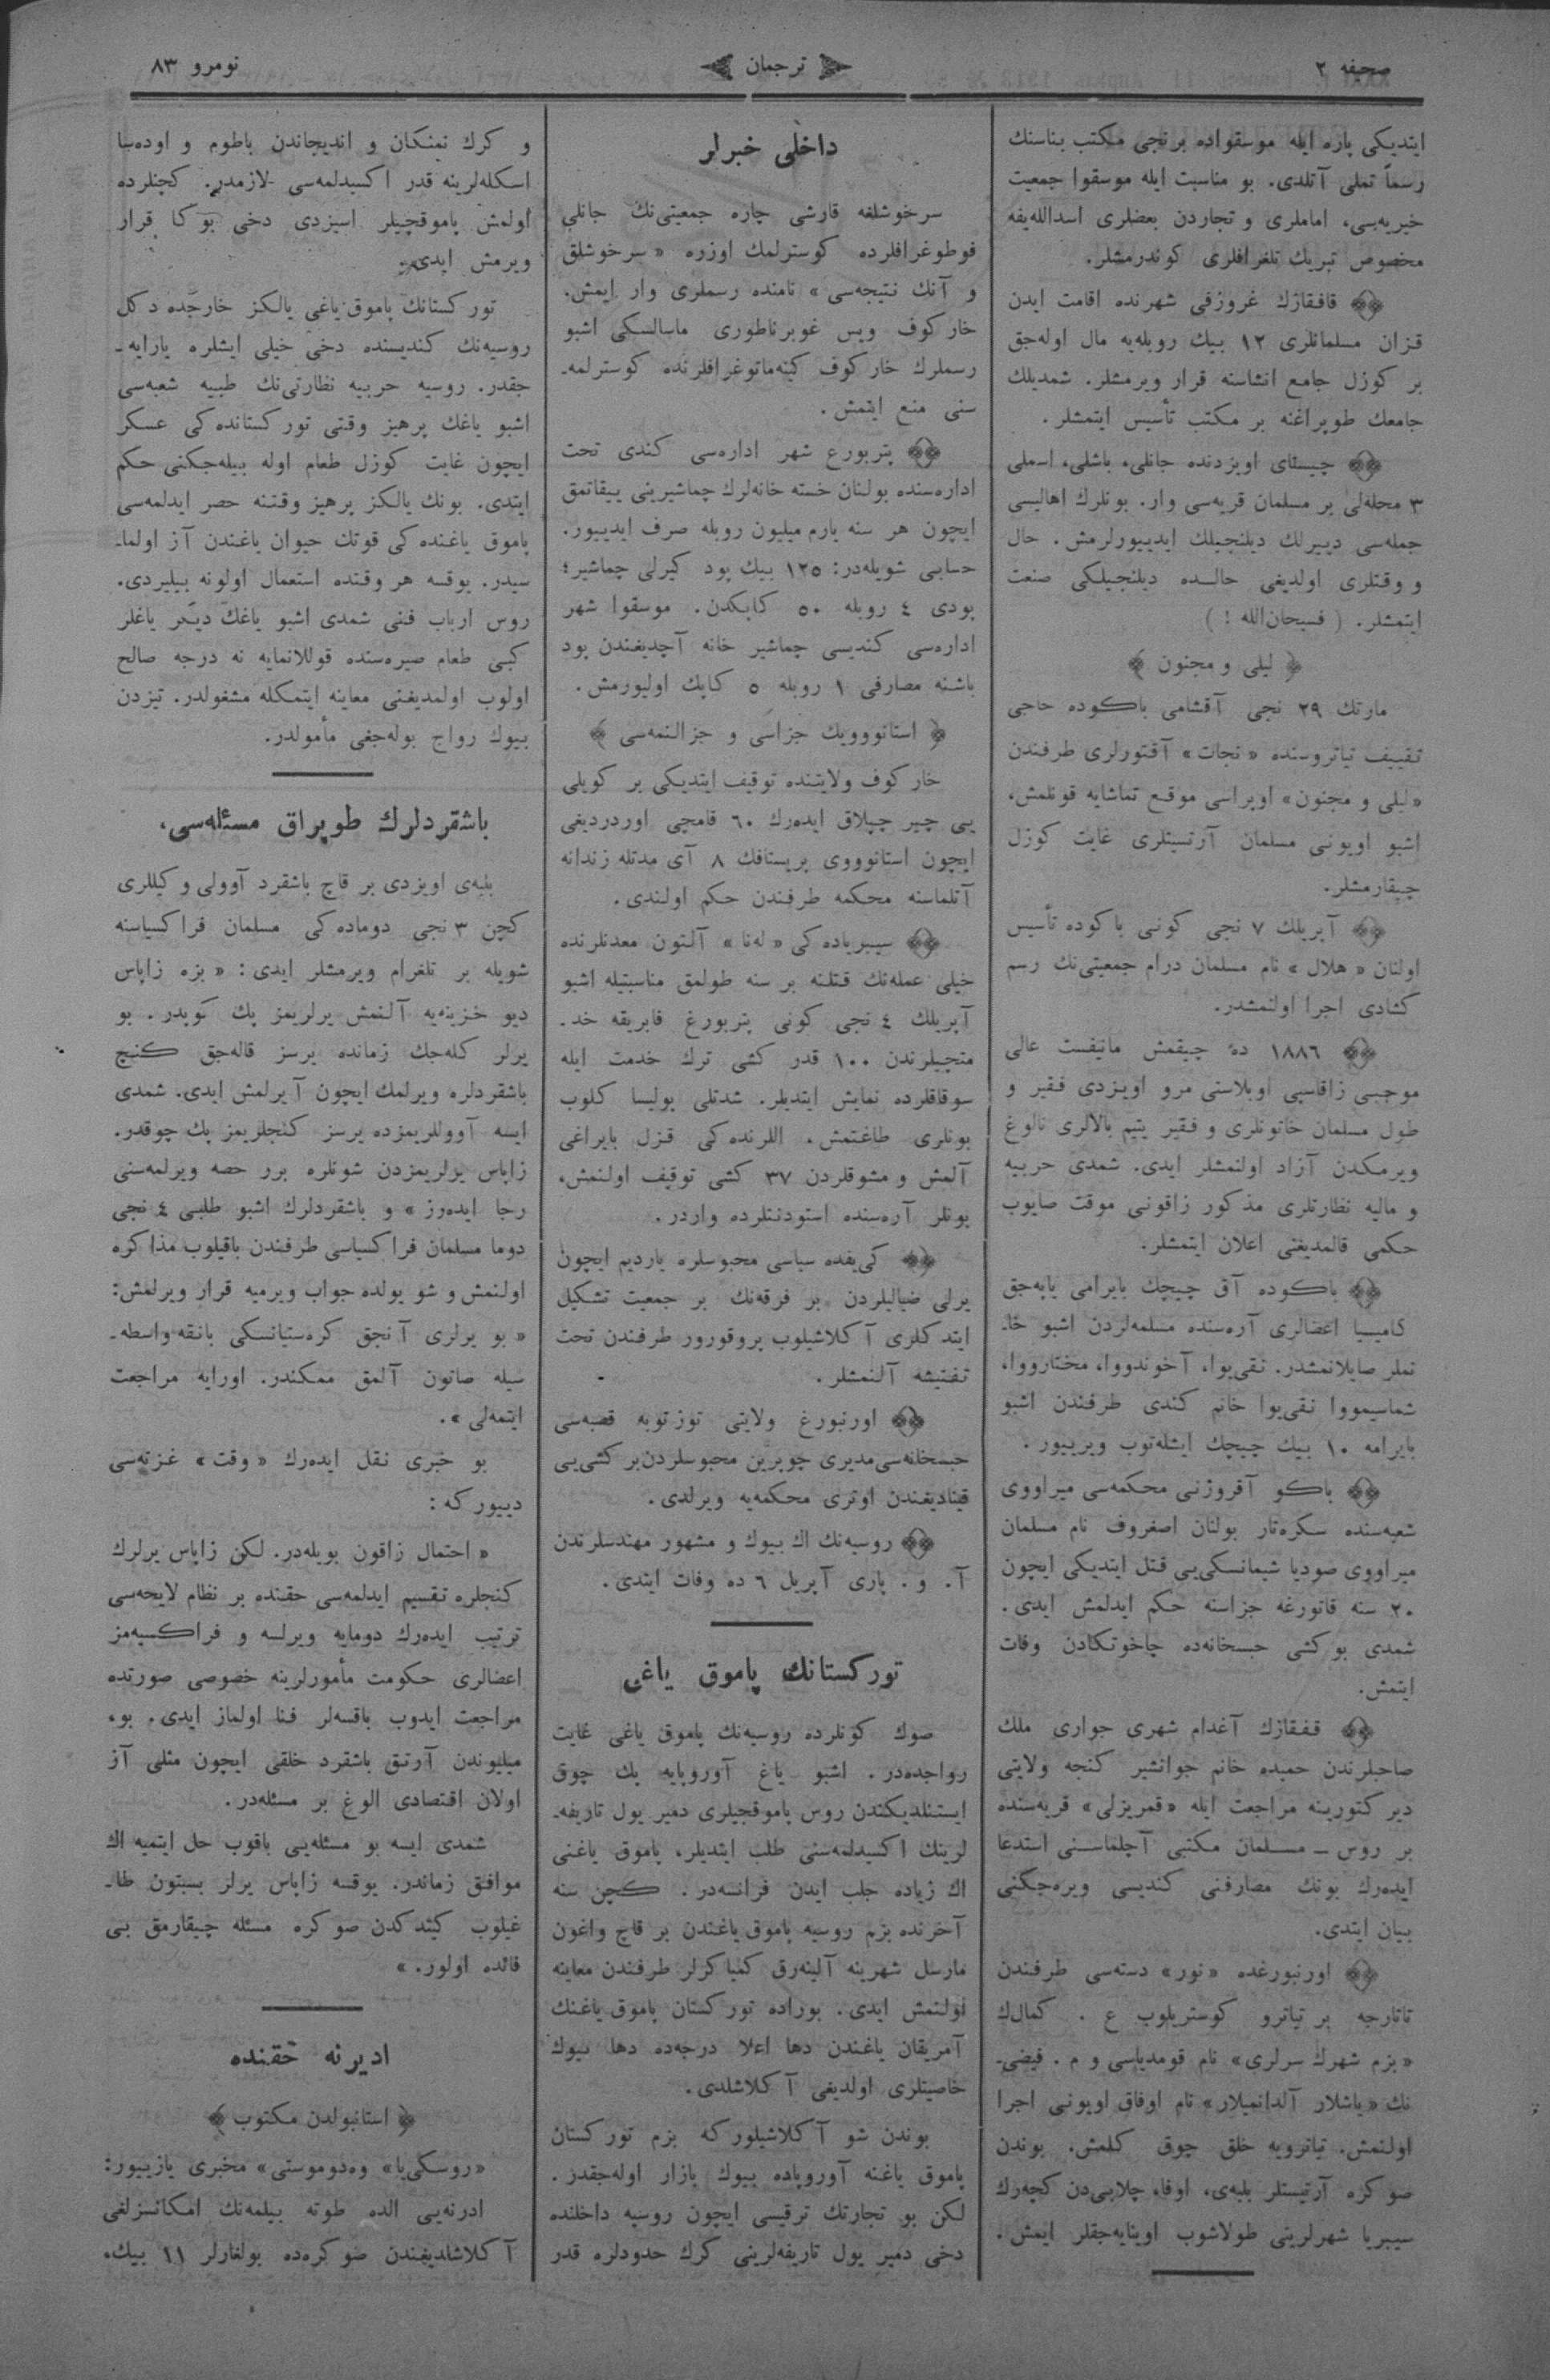 صحیفه ۲
ترجمان
نومرو ۸۳
ایتدیكی پاره ایله موسقواده برنجی مكتب بناسنك
رسماً تملی آتلدی. بو مناسبت ایله موسقوا جمعیت
خیریه‌سی، اماملری و تجاردن بعضلری اسدالله‌یفه
مخصوص تبریك تلغرافلری كوندرمشلر.
قافقازك غروزنی شهرنده اقامت ایدن
قزان مسلمانلری ۱۲ بیك روبله‌یه مال اوله‌جق
بر كوزل جامع انشاسنه قرار ویرمشلر. شمدیلك
جامعك طوپراغنه بر مكتب تأسیس ایتمشلر.
چیستای اویزدنده جانلی، باشلی، اسملی
۳ محله‌لی بر مسلمان قریه‌سی وار. بونلرك اهالیسی
جمله‌سی دییرلك دیلنجیلك ایدییورلرمش. حال
و وقتلری اولدیغی حالده دیلنجیلكی صنعت
ایتمشلر. ( فسبحان‌الله ! )
﴿ لیلی و مجنون ﴾
مارتك ۲۹ نجی آقشامی باكوده حاجی
تقییف تیاتروسنده « نجات » آقتورلری طرفندن
« لیلی و مجنون » اوپراسی موقع تماشایه قونلمش،
اشبو اویونی مسلمان آرتیستلری غایت كوزل
چیقارمشلر.
آپریلك ۷ نجی كونی باكوده تأسیس
اولنان « هلال » نام مسلمان درام جمعیتی‌نك رسم
كشادی اجرا اولنمشدر.
۱۸۸٦ ده چیقمش مانیفست عالی
موجبی زاقاسپی اوبلاستی مرو اویزدی فقیر و
طول مسلمان خاتونلری و فقیر یتیم بالالری نالوغ
ویرمكدن آزاد اولنمشلر ایدی. شمدی حربیه
و مالیه نظارتلری مذكور زاقونی موقت صایوب
حكمی قالمدیغنی اعلان ایتمشلر.
باكوده آق چیچك بایرامی یاپه‌جق
كامیسیا اعضالری آره‌سنده مسلمه‌لردن اشبو خا‌ـ
نملر صایلانمشدر. نقی‌یوا، آخوندووا، مختارووا،
شماسیمووا نقی‌یوا خانم كندی طرفندن اشبو
بایرامه ۱۰ بیك چیچك ایشله‌توب ویرییور.
باكو آقروژنی محكمه‌سی میراووی
شعبه‌سنده سكره‌تار بولنان اصغروف نام مسلمان
میراووی صودیا شیمانسكی‌یی قتل ایتدیكی ایچون
۲۰ سنه قاتورغه جزاسنه حكم ایدلمش ایدی.
شمدی بو كشی حبسخانه‌ده چاخوتكادن وفات
ایتمش.
قفقازك آغدام شهری جواری ملك
صاحبلرندن حمیده خانم جوانشیر كنجه ولایتی
دیركتورینه مراجعت ایله « قمریزلی » قریه‌سنده
بر روس ـ مسلمان مكتبی آچلماسنی استدعا
ایده‌رك بونك مصارفنی كندیسی ویره‌جكنی
بیان ایتدی.
اورنبورغده « نور » دسته‌سی طرفندن
تاتارجه بر تیاترو كوستریلوب ع. كمال‌ك
« بزم شهرك سرلری » نام قومدیاسی و م. فیضی‌ـ
نك « یاشلار آلدانمیلار » نام اوفاق اویونی اجرا
اولنمش. تیاترویه خلق چوق كلمش. بوندن
صوكره آرتیستلر بلبه‌ی، اوفا، چلابی‌دن كچه‌رك
سیبریا شهرلرینی طولاشوب اوینایه‌جقلر ایمش.
داخلی خبرلر
سرخوشلغه قارشی چاره جمعیتی‌نك جانلی
فوطوغرافلرده كوسترلمك اوزره « سرخوشلق
و آنك نتیجه‌سی » نامنده رسملری وار ایمش.
خاركوف ویس غوبرناطوری ماسالسكی اشبو
رسملرك خاركوف كینه‌ماتوغرافلرنده كوسترلمه‌ـ
سنی منع ایتمش.
پتربورغ شهر اداره‌سی كندی تحت
اداره‌سنده بولنان خسته خانه‌لرك چماشیرینی ییقاتمق
ایچون هر سنه یارم میلیون روبله صرف ایدییور.
حسابی شویله‌در: ۱۲۵ بیك پود كیرلی چماشیر؛
پودی ٤ روبله ۵۰ كاپكدن. موسقوا شهر
اداره‌سی كندیسی چماشیر خانه آچدیغندن پود
باشنه مصارفی ۱ روبله ۵ كاپك اولیورمش.
﴿ استانوووییك جزاسی و جزالنمه‌سی ﴾
خاركوف ولایتنده توقیف ایتدیكی بر كویلی
یی چیر چپلاق ایده‌رك ٦۰ قامچی اوردردیغی
ایچون استانوووی پریستافك ۸ آی مدتله زندانه
آتلماسنه محكمه طرفندن حكم اولندی.
سیبریاده‌كی « له‌نا » آلتون معدنلرنده
خیلی عمله‌نك قتلنه بر سنه طولمق مناسبتیله اشبو
آپریلك ٤ نجی كونی پتربورغ فابریقه خد‌ـ
متچیلرندن ۱۰۰ قدر كشی ترك خدمت ایله
سوقاقلرده نمایش ایتدیلر. شدتلی پولیسا كلوب
بونلری طاغتمش، اللرنده‌كی قزل بایراغی
آلمش و مشوقلردن ۳۷ كشی توقیف اولنمش،
بونلر آره‌سنده استودنتلرده واردر.
كی‌یفده سیاسی محبوسلره یاردیم ایچون
یرلی ضیالیلردن بر فرقه‌نك بر جمعیت تشكیل
ایتدكلری آكلاشیلوب پروقورور طرفندن تحت
تفتیشه آلنمشلر.
اورنبورغ ولایتی توزتوبه قصبه‌سی
حبسخانه‌سی مدیری چویرین محبوسلردن بر كشی‌یی
قیناديغندن اوتری محكمه‌یه ویرلدی.
روسیه‌نك اك بیوك و مشهور مهندسلرندن
آ. و. پاری آپریل ٦ ده وفات ایتدی.
توركستانك پاموق یاغی
صوك كونلرده روسیه‌نك پاموق یاغی غایت
رواجده‌در. اشبو یاغ آوروپایه پك چوق
ایستنلدیكندن روس پاموقجیلری دمیر یول تاریفه‌ـ
لرینك اكسیدلمه‌سنی طلب ایتدیلر، پاموق یاغنی
اك زیاده جلب ایدن فرانسه‌در. كچن سنه
آخرنده بزم روسیه پاموق یاغندن بر قاچ واغون
مارسل شهرینه آلینه‌رق كمیاكرلر طرفندن معاینه
اولنمش ایدی. بوراده توركستان پاموق یاغنك
آمریقان یاغندن دها اعلا درجه‌ده دها بیوك
خاصیتلری اولدیغی آكلاشلدی.
بوندن شو آكلاشیلوركه بزم توركستان
پاموق یاغنه آوروپاده بیوك بازار اوله‌جقدر.
لكن بو تجارتك ترقیسی ایچون روسیه داخلنده
دخی دمیر یول تاریفه‌لرینی كرك حدودلره قدر
و كرك نمنكان و اندیجاندن باطوم و اوده‌سا
اسكله‌لرینه قدر اكسیدلمه‌سی لازمدر. كچنلرده
اولمش پاموقچیلر اسیزدی دخی بوكا قرار
ویرمش ایدی.
توركستانك پاموق یاغی یالكز خارجده دكل
روسیه‌نك كندیسنده دخی خیلی ایشلره یارایه‌ـ
جقدر. روسیه حربیه نظارتی‌نك طبیه شعبه‌سی
اشبو یاغك پرهیز وقتی توركستانده‌كی عسكر
ایچون غایت كوزل طعام اوله بیله‌جكنی حكم
ایتدی. بونك یالكز پرهیز وقتنه حصر ایدلمه‌سی
پاموق یاغنده‌كی قوتك حیوان یاغندن آز اولما‌ـ
سیدر. یوقسه هر وقتده استعمال اولونه بیلیردی.
روس ارباب فنی شمدی اشبو یاغك دیكر یاغلر
كبی طعام صیره‌سنده قوللانمایه نه درجه صالح
اولوب اولمدیغنی معاینه ایتمكله مشغولدر. تیزدن
بیوك رواج بوله‌جغی مأمولدر.
باشقردلرك طوپراق مسئله‌سی،
بلبه‌ی اویزدی بر قاچ باشقرد آوولی وكیللری
كچن ۳ نجی دوماده‌كی مسلمان فراكسیاسنه
شویله بر تلغرام ویرمشلر ایدی: « بزه زاپاس
دیو خزینه‌یه آلنمش یرلریمز پك كوپدر. بو
یرلر كله‌جك زمانده یرسز قاله‌جق كنج
باشقردلره ویرلمك ایچون آیرلمش ایدی. شمدی
ایسه آووللریمزده یرسز كنجلریمز پك چوقدر.
زاپاس یرلریمزدن شونلره برر حصه ویرلمه‌سنی
رجا ایده‌رز » و باشقردلرك اشبو طلبی ٤ نجی
دوما مسلمان فراكسیاسی طرفندن باقیلوب مذاكره
اولنمش و شو یولده جواب ویرمیه قرار ویرلمش:
« بو یرلری آنجق كره‌ستیانسكی بانقه واسطه‌ـ
سیله صاتون آلمق ممكندر. اورایه مراجعت
ایتمه‌لی ».
بو خبری نقل ایده‌رك « وقت » غزته‌سی
دییوركه:
« احتمال زاقون بویله‌در. لكن زاپاس یرلرك
كنجلره تقسیم ایدلمه‌سی حقنده بر نظام لایحه‌سی
ترتیب ایده‌رك دومایه ویرلسه و فراكسیه‌مز
اعضالری حكومت مأمورلرینه خصوصی صورتده
مراجعت ایدوب باقسه‌لر فنا اولماز ایدی. بو،
میلیوندن آرتق باشقرد خلقی ایچون مثلی آز
اولان اقتصادی الوغ بر مسئله‌در.
شمدی ایسه بو مسئله‌یی باقوب حل ایتمیه اك
موافق زماندر. یوقسه زاپاس یرلر بسبتون طا‌ـ
غیلوب كیتدكدن صوكره مسئله چیقارمق بی
فائده اولور. »
ادیرنه حقنده
﴿ استانبولدن مكتوب ﴾
« روسكی‌یا » وه‌دوموستی » مخبری یازییور:
ادرنه‌یی الده طوته بیلمه‌نك امكانسزلغی
آكلاشلدیغندن صوكره‌ده بولغارلر ۱۱ بیك،